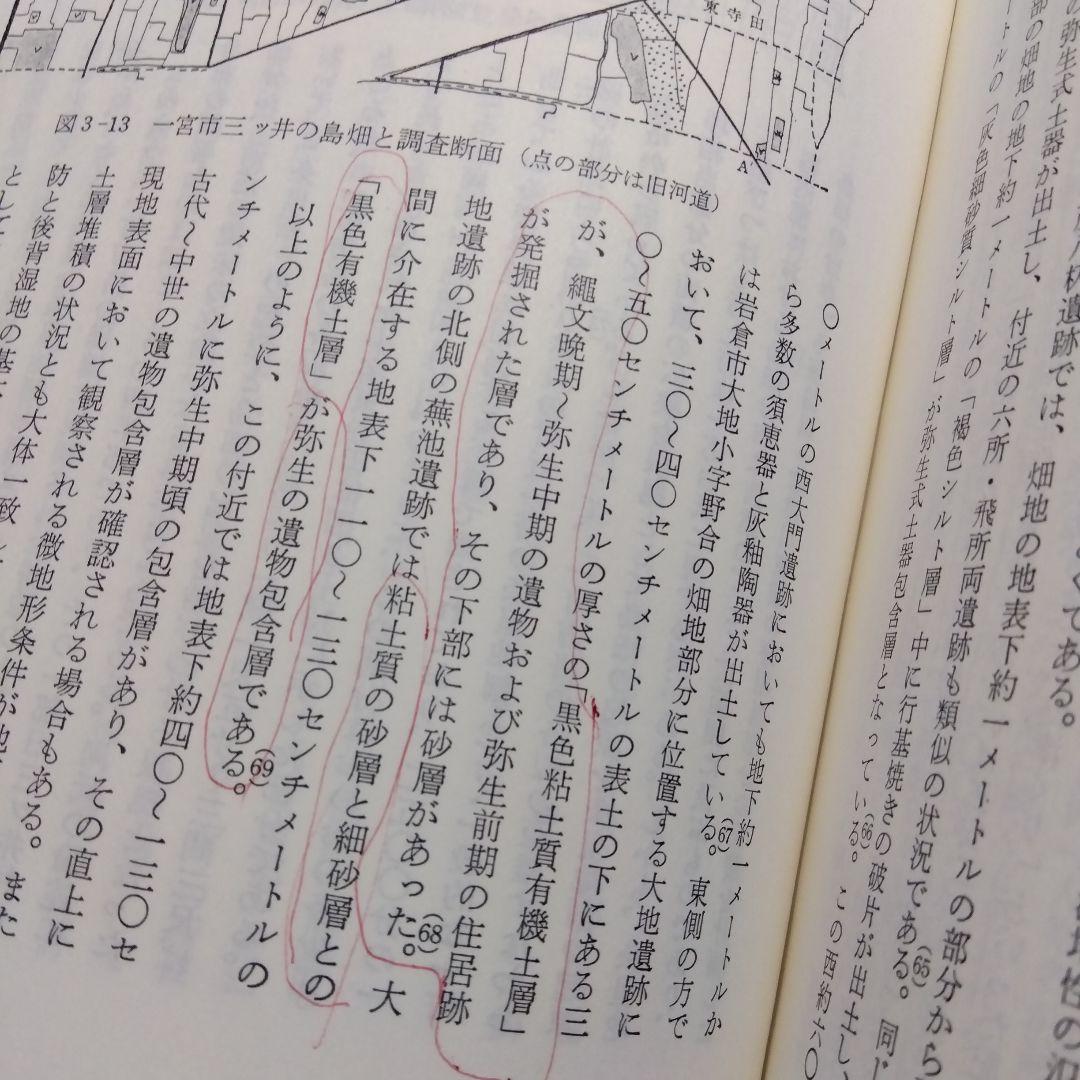 東寺田
A
図3-13 一宮市三ッ井の島畑と調査断面（点の部分は旧河道）
くである。
遺跡では、畑地の地表下約一メートルの部分から
の弥生式土器が出土し、付近の六所・飛所両遺跡も類似の状況である。(65) 同じ
部の畑地の地下約一メートルの「褐色シルト層」中に行基焼きの破片が出土し、
ートルの「灰色細砂質シルト層」が弥生式土器包含層となっている。(66) この西約六〇
〇メートルの西大門遺跡においても地下約一メートルか
ら多数の須恵器と灰釉陶器が出土している。(67) 東側の方で
は岩倉市大地小字野合の畑地部分に位置する大地遺跡に
おいて、三〇〜四〇センチメートルの表土の下にある三
〇〜五〇センチメートルの厚さの「黒色粘土質有機土層」
が、縄文晩期〜弥生中期の遺物および弥生前期の住居跡
が発掘された層であり、その下部には砂層があった。(68) 大
地遺跡の北側の蕪池遺跡では粘土質の砂層と細砂層との
間に介在する地表下一一〇〜一三〇センチメートルの
「黒色有機土層」が弥生の遺物包含層である。(69)
以上のように、この付近では地表下約四〇〜一三〇セ
ンチメートルに弥生中期頃の包含層があり、その直上に
古代〜中世の遺物包含層が確認される場合もある。また
現地表面において観察される微地形条件が地
土層堆積の状況とも大体一致し
防と後背湿地の基
として